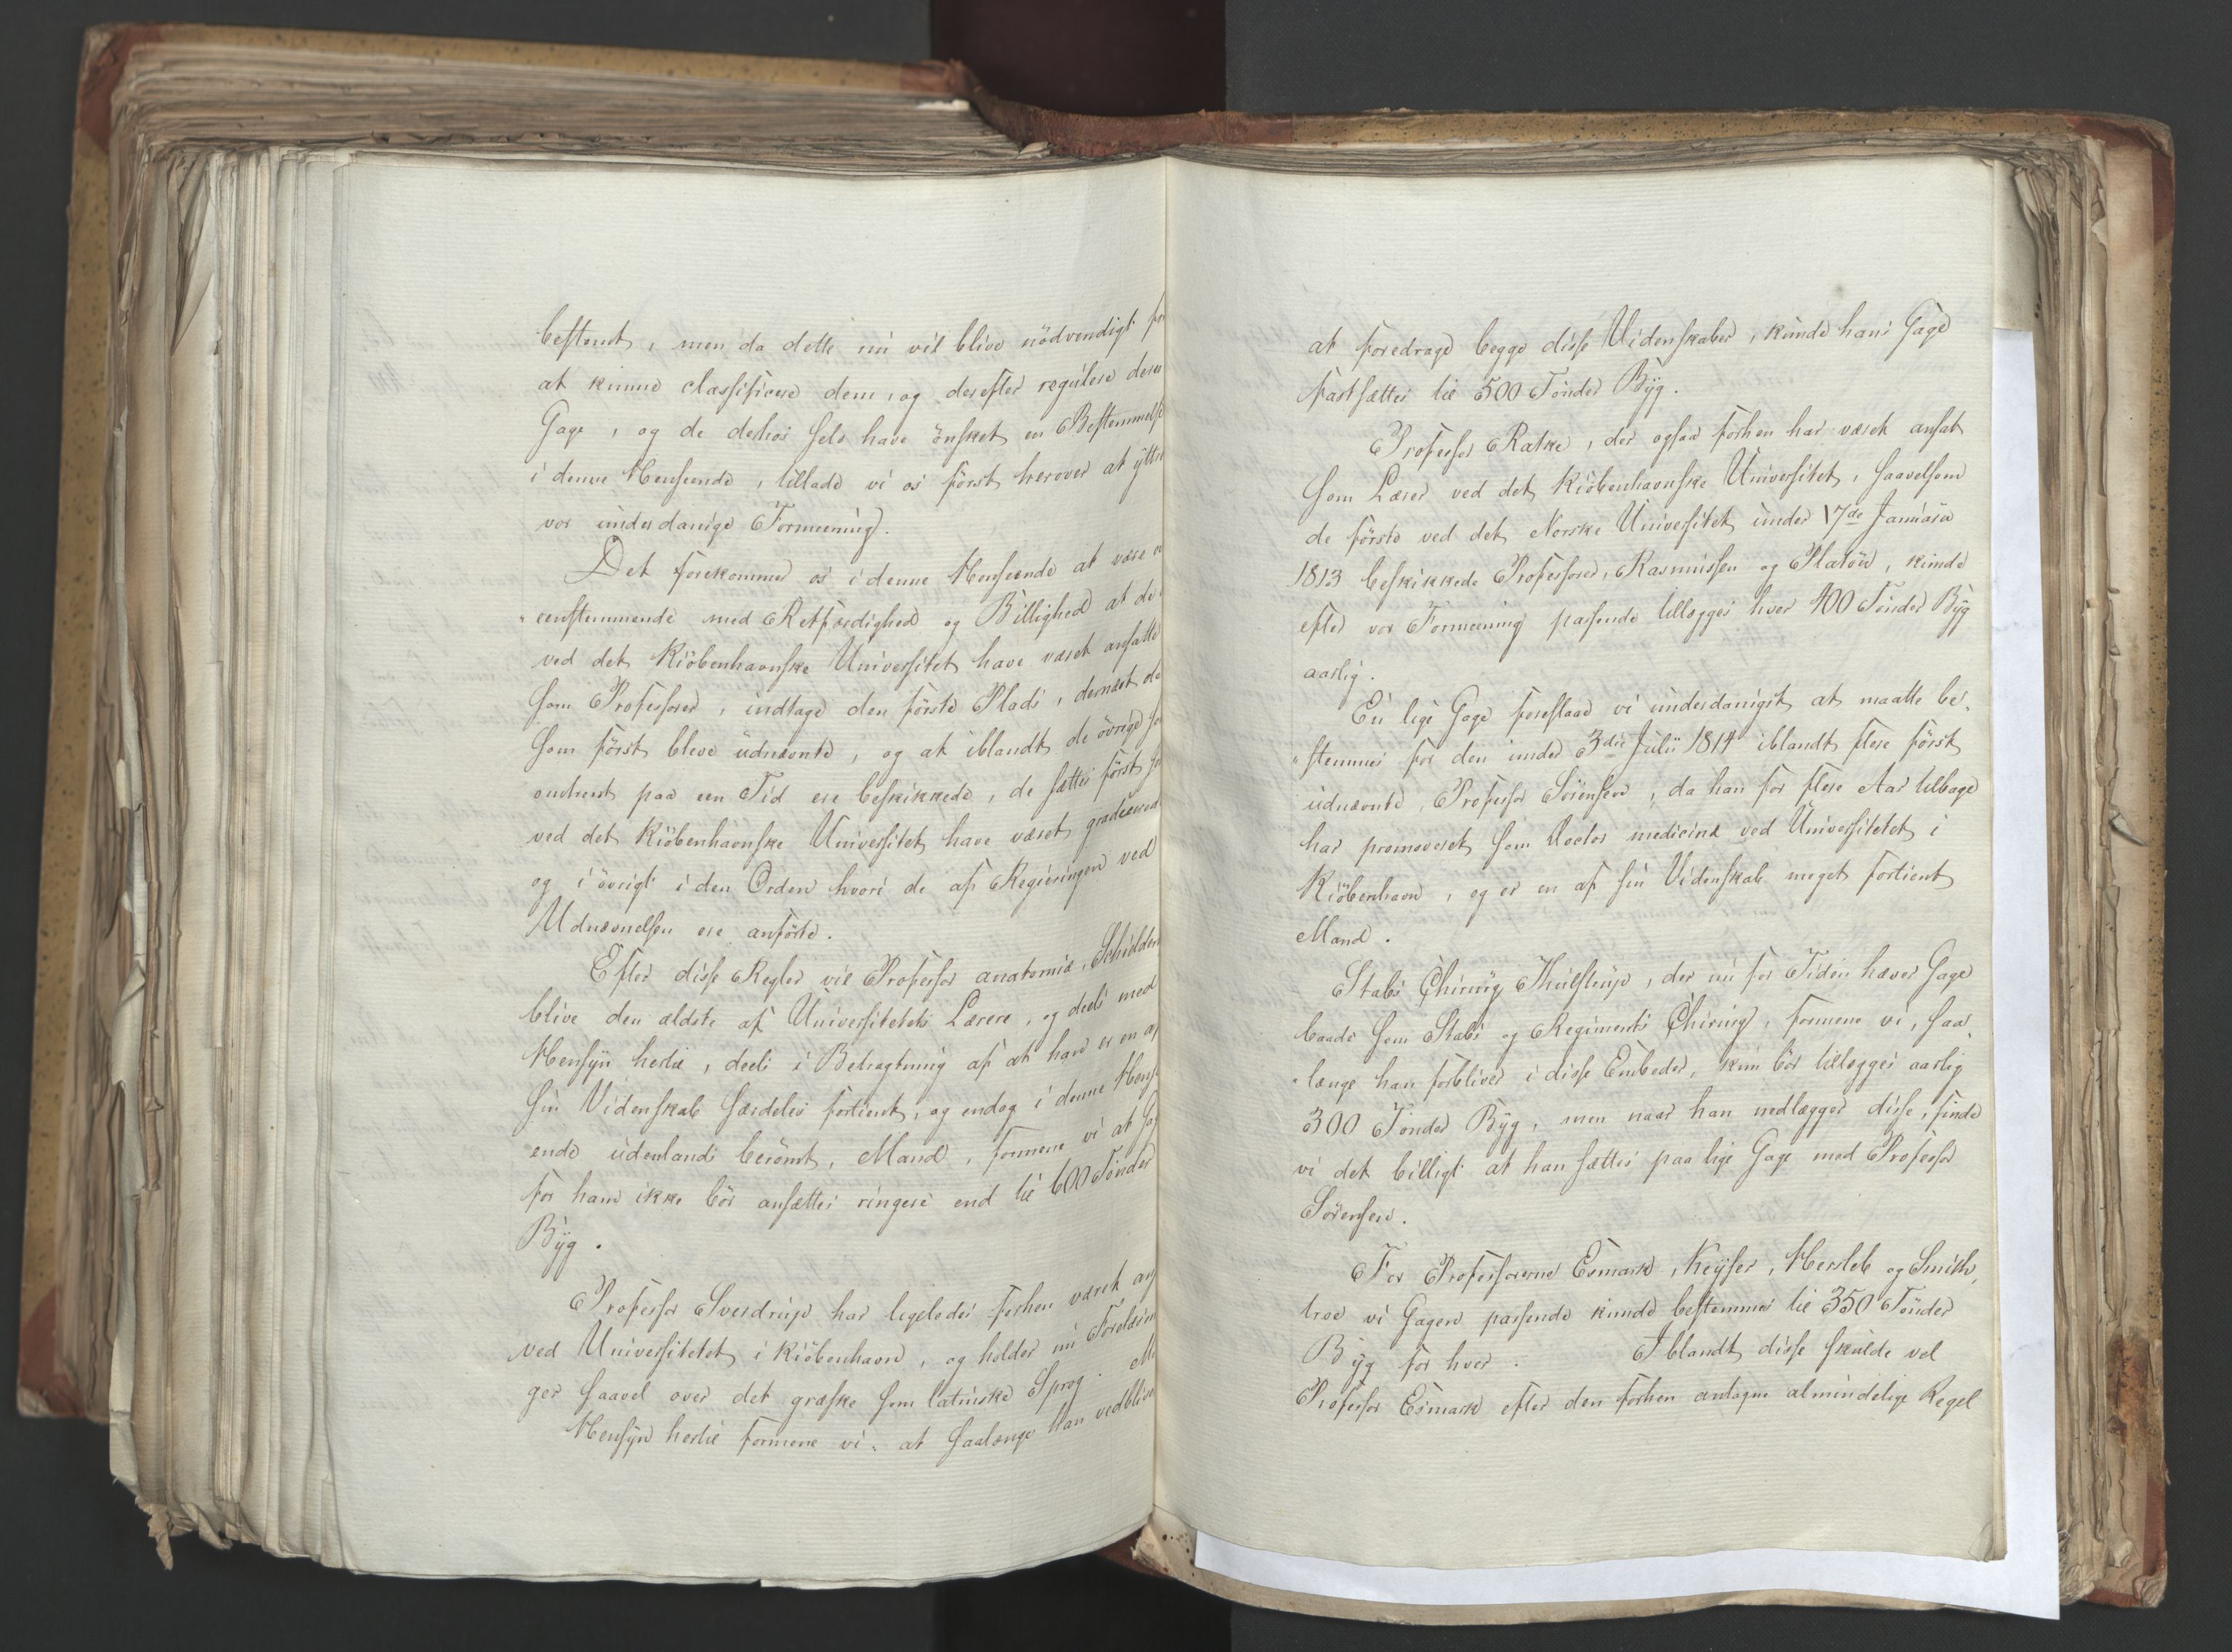 bestemt, men da dette nu vil blive nödvendigt for
at kunne classificere dem, og derefter regulere deres
Gage, og de derhos selv have önsket en Bestemmelse
i denne Henseende, tillade vi os först herover at yttre
vor underdanige Formeening.
Det forekommer os i denne Henseende at være
eenstemmende med Retfærdighed og Billighed at de
ved det Kiöbenhavnske Universitet have været ansatte
som Professorer, indtage den förste Plads, dernæst de
som först bleve udnævnte, og at iblandt de övrige
omtrent paa een Tid ere beskikkede, de sættes först
ved det Kiöbenhavnske Universitet have været graduerede
og i övrigt i den Orden hvori de af Regieringen ved
Udnævnelsen ere anförte.
Efter disse Regler vil Professor anatomiæ, Schielderup
blive den ældste af Universitetets Lærere, og deels med
Hensyn hertil, deels i Betragtning af at han er en af
sin Videnskab særdeles fortient, og endog i denne Hense
ende udenlands berömt, Mand, formene vi at Ga
for ham ikke bör ansættes ringere end til 600 Tönder
Byg.
Professor Sverdrup har ligeledes forhen været an
ved Universitetet i Kiöbenhavn, og holder nu Forelæsnin
ger saavel over det græske som latinske Sprog. Me
Hensyn hertil formene vi, at saalænge han vedblive
at foredrage begge disse Videnskaber, kunde hans Gage
fastsættes til 500 Tönder Byg.
Professor Ratke, der ogsaa forhen har været ansat
som Lærer ved det Kiöbenhavnske Universitet, saavelsom
de förste ved det Norske Universitet under 17de Januarii
1813 beskikkede Professorer, Rasmussen og Platöu, kunde
efter vor Formeening passende tillægges hver 400 Tönder Byg
aarlig.
En lige Gage foreslaae vi underdanigst at maatte be„
„stemmes for den under 3die Julii 1814 iblandt flere först
udnævnte, Professor Sörensen, da han for flere Aar tilbage
har promoveret som Doctor medicinæ ved Universitetet i
Kiöbenhavn, og er en af sin Videnskab meget fortient
Mand.
Stabs Chirurg Thulstrup, der nu for Tiden hæver Gage
baade som Stabs og Regiments Chirurg, formene vi, saa„
„længe han forbliver i disse Embeder, kun bör tillægges aarlig
300 Tönder Byg, men naar han nedlægger disse, finde
vi det billigt at han sættes paa lige Gage med Professor
Sörensen.
For Professorerne Esmark, Keyser, Hersleb og Smith,
troe vi Gagen passende kunde bestemmes til 350 Tönder
Byg for hver. Iblandt disse skulde vel
Professor Esmark efter den forhen antagne almindelige Regel